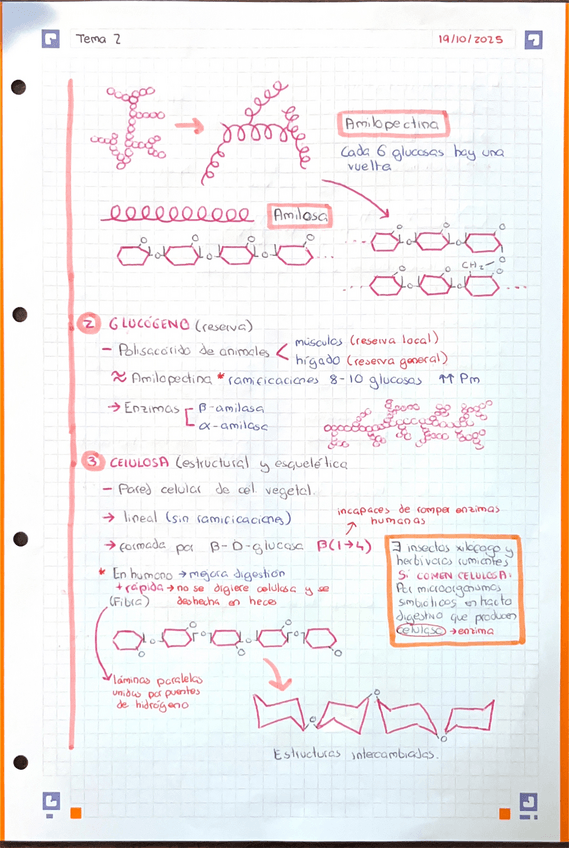 Tema 2
19/10/2025
Amilopectina
Cada 6 glucosas hay una
vuelta
Amilosa
O O O O
O O O
...
... O O O
O O
CH₂ — O
O O
O O ...
② GLUCÓGENO (reserva)
— Polisacárido de animales < músculos (reserva local)
hígado (reserva general)
≈ Amilopectina * ramificaciones 8-10 glucosas ↑↑ Pm
→ Enzimas [ β-amilasa
α-amilasa
③ CELULOSA (estructural y esquelética
— Pared celular de cel vegetal.
→ lineal (sin ramificaciones)
incapaces de romper enzimas
humanas
→ formada por β-D-glucosa β(1→4)
* En humano → mejora digestión
+ rápida → no se digiere celulosa y se
(Fibra) deshecha en heces
∃ insectos xilófago y
herbívoros rumiantes
SÍ COMEN CELULOSA:
Por microorganismos
simbióticos en tracto
digestivo que producen
celulasa → enzima
O O O O
O O O
láminas paralelas
unidas por puentes
de hidrógeno
O O O
Estructuras intercambiadas.